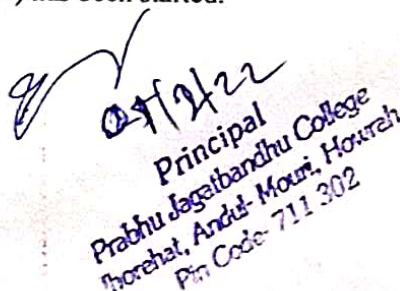 has been started.
Principal
Prabhu Jagatbandhu College
Jhorehat, Andul-Mouri, Howrah
Pin Code- 711 302